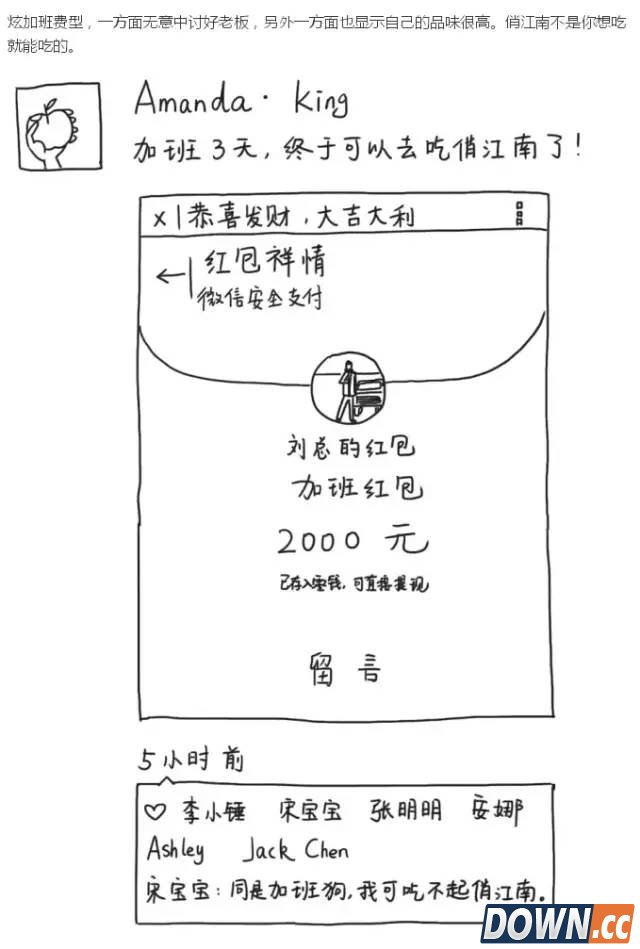 炫加班费型，一方面无意中讨好老板，另外一方面也显示自己的品味很高。俏江南不是你想吃
就能吃的。
Amanda · King
加班3天，终于可以去吃俏江南了！
x | 恭喜发财，大吉大利
红包祥情
微信安全支付
刘总的红包
加班红包
2000 元
已存入零钱，可直接提现
留言
5小时前
♡ 李小锤 宋宝宝 张明明 安娜
Ashley Jack Chen
宋宝宝：同是加班狗，我可吃不起俏江南。
DOWN.cc